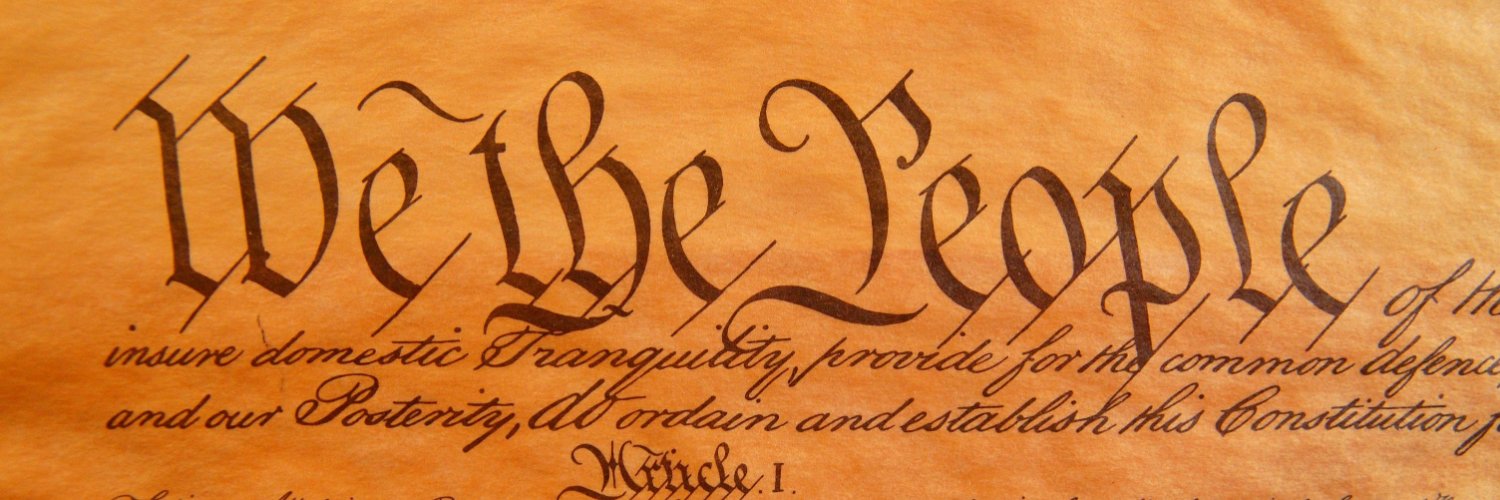 We the People of the
insure domestic Tranquility, provide for the common defence,
and our Posterity, do ordain and establish this Constitution
Article. I.